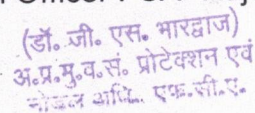 (डॉ. जी. एस. भारद्वाज)
अ.प्र.मु.व.सं. प्रोटेक्शन एवं
नोडल अधि. एफ.सी.ए.